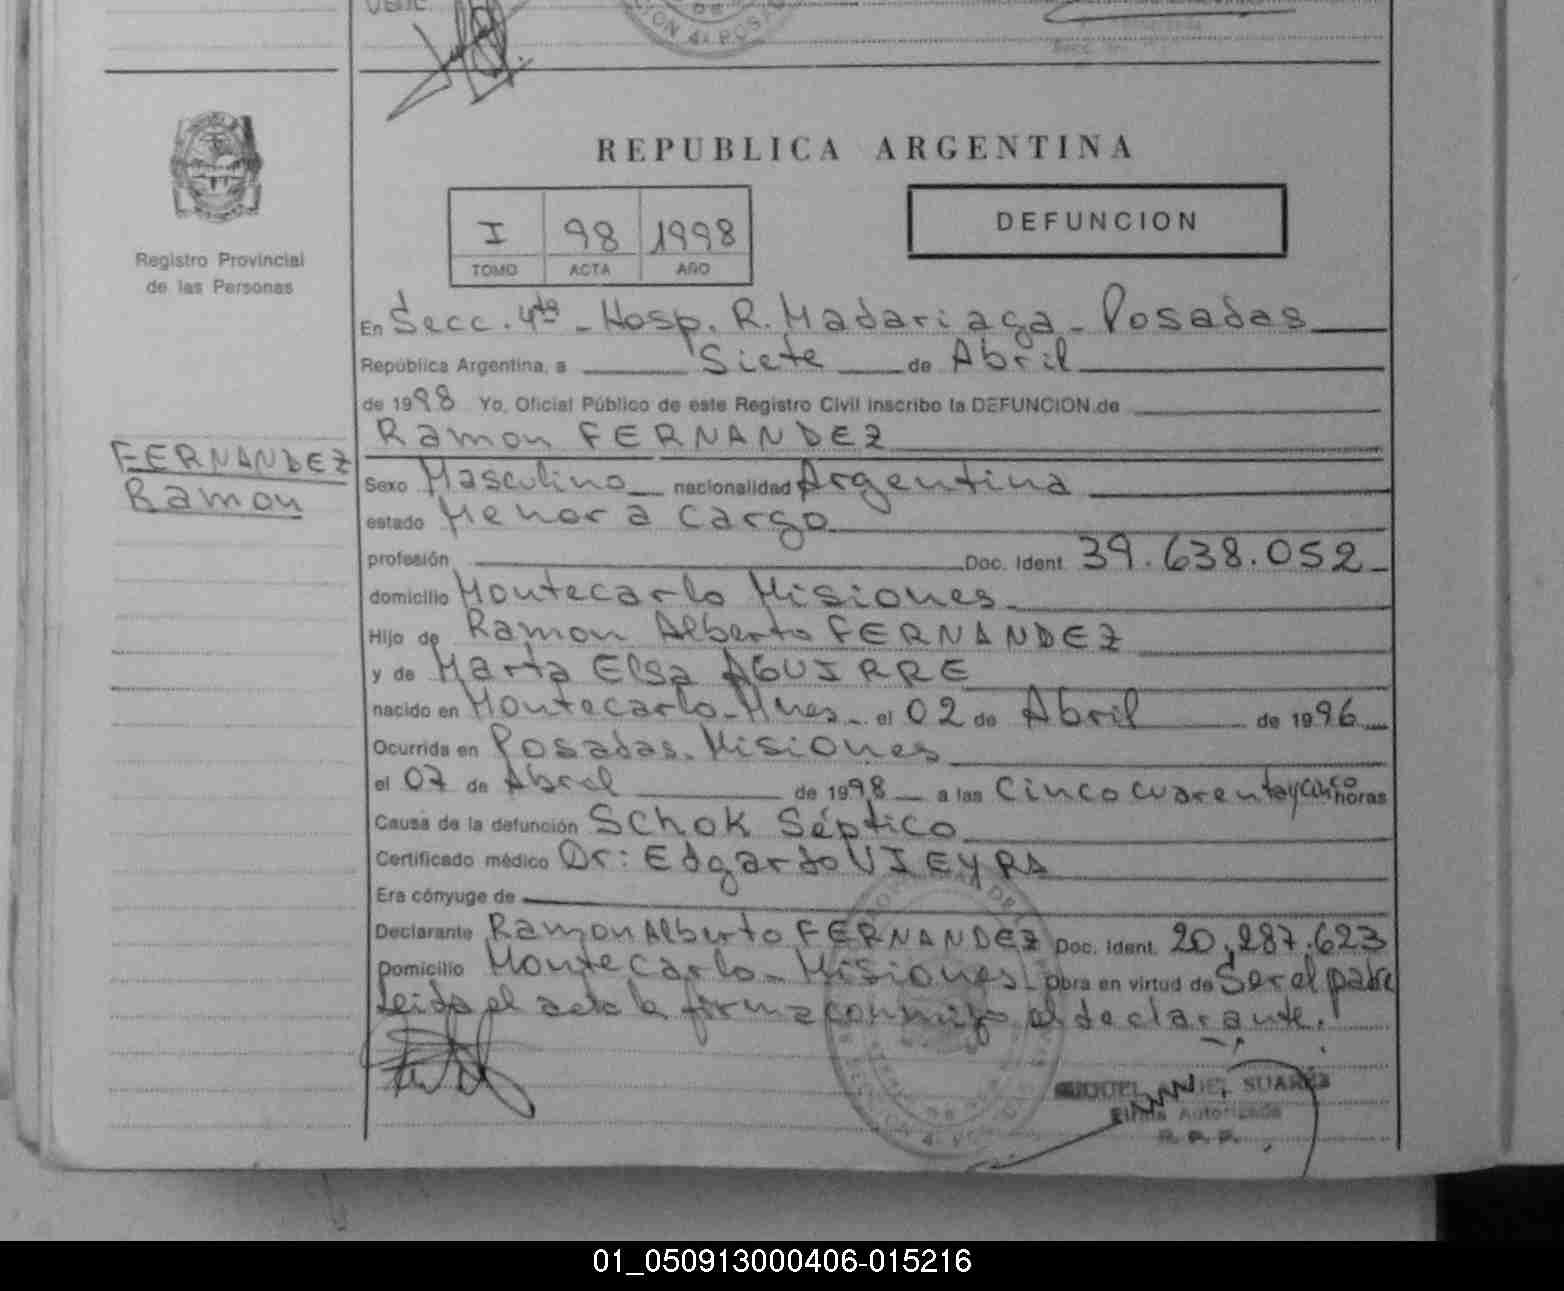 REPUBLICA ARGENTINA
Registro Provincial
de las Personas
I 98 1998
TOMO ACTA AÑO
DEFUNCION
En Secc. 4ta - Hosp. R. Madariaga - Posadas
República Argentina, a Siete de Abril
de 1998 Yo, Oficial Público de este Registro Civil inscribo la DEFUNCION de
Ramon FERNANDEZ
FERNANDEZ
Ramon
Sexo Masculino nacionalidad Argentina
estado Menor a cargo
profesión Doc. Ident. 39.638.052
domicilio Montecarlo Misiones
Hijo de Ramon Alberto FERNANDEZ
y de Marta Elsa AGUIRRE
nacido en Montecarlo - Mnes - el 02 de Abril de 1996
Ocurrida en Posadas. Misiones
el 07 de Abril de 1998 a las Cinco cuarenta y cinco horas
Causa de la defunción Schok Séptico
Certificado médico Dr: Edgardo VIEYRA
Era cónyuge de
Declarante Ramon Alberto FERNANDEZ Doc. Ident. 20.287.623
Domicilio Montecarlo - Misiones - obra en virtud de Ser el padre
Leida el acta la firma conmigo el declarante.
MIGUEL ANGEL SUAREZ
Firma Autorizada
R. P. P.
01_050913000406-015216